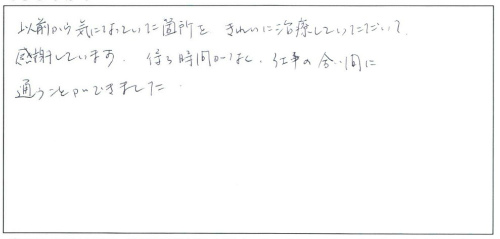 以前から気になっていた箇所を きれいに治療していただいて、
感謝しています。 待ち時間がなく、仕事の合い間に
通うことができました。